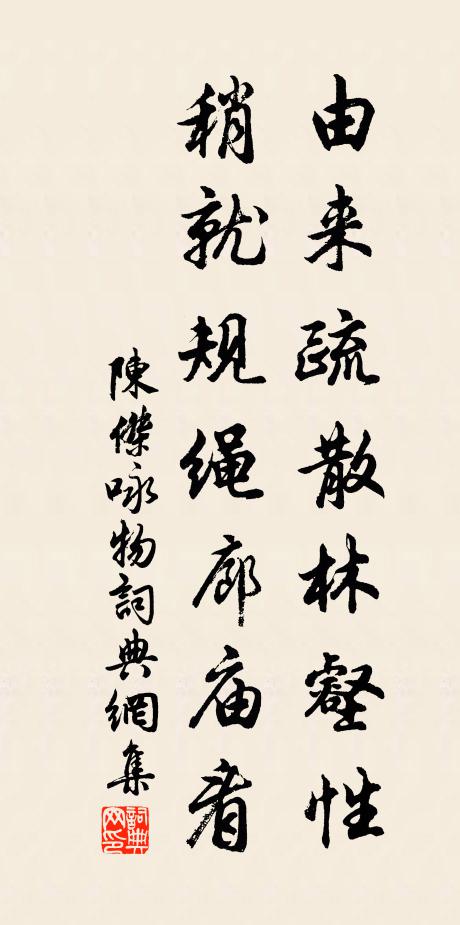 由来疏散林壑性
稍就规绳廊庙看
陳傑咏物詞典網集
詞典网印